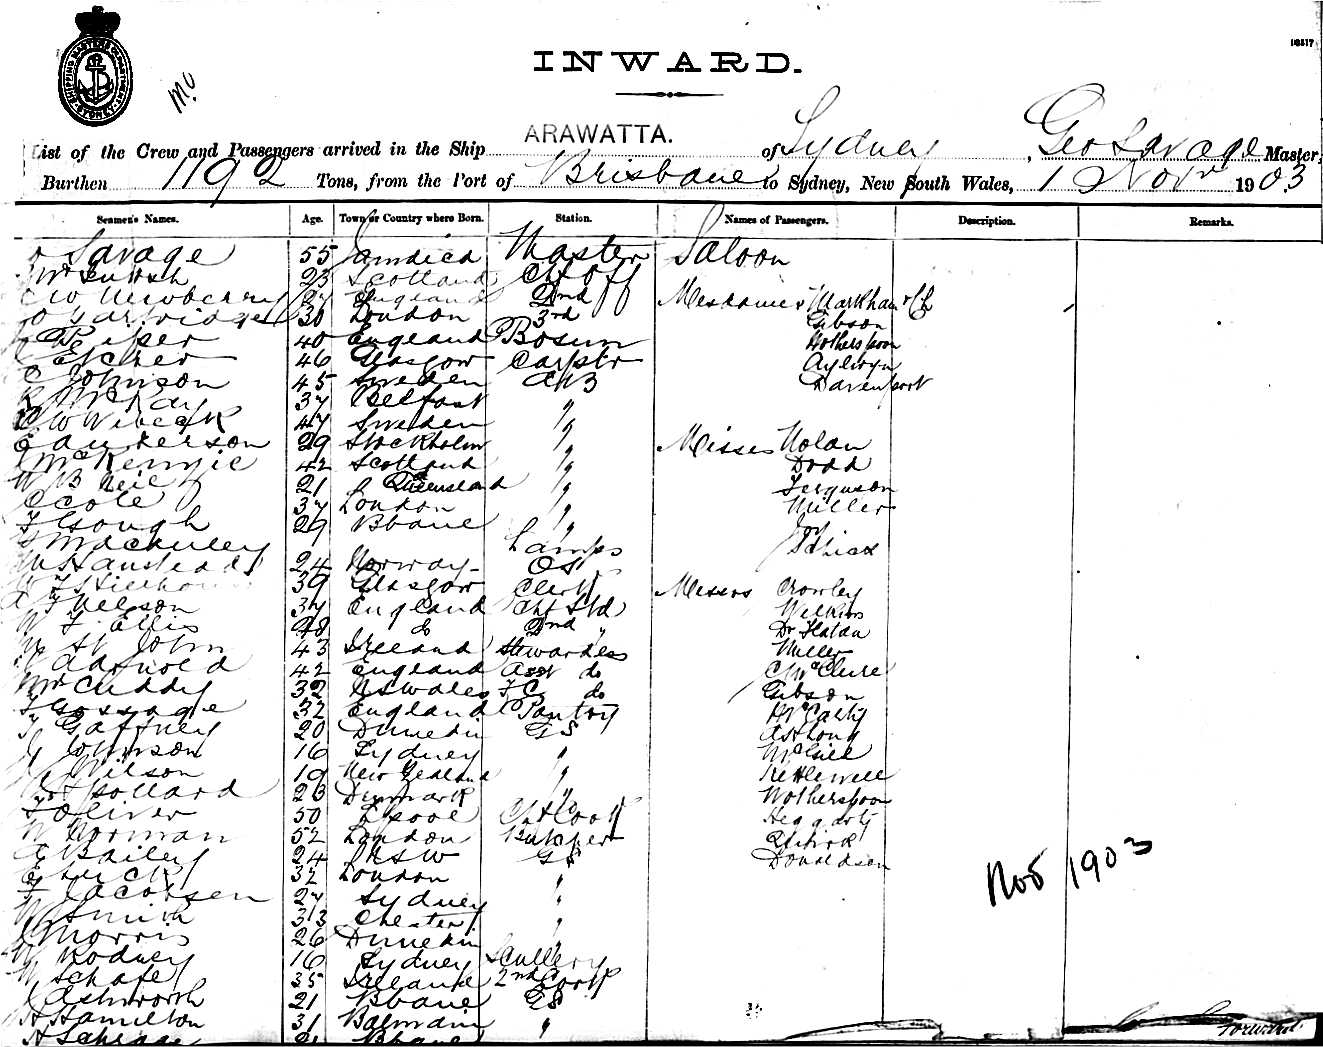 INWARD.
10517
M.O
SHIPPING MASTERS DEPARTMENT SYDNEY
List of the Crew and Passengers arrived in the Ship ARAWATTA. of Sydney, Geo Savage Master,
Burthen 1192 Tons, from the Port of Brisbane to Sydney, New South Wales, 1 Novr 1903
Seamen's Names. Age. Town or Country where Born. Station. Names of Passengers. Description. Remarks.
Savage 55 Master Saloon
23 Scotland Chf Off
C W Newberry 27 England 2nd Mesdames Markham
30 London 3rd Gibson
Piper 40 England Bosun Wotherspoon
46 Glasgow Carptr
C Johnson 45 Sweden AB Davenport
R McKay 37 Belfast "
47 Sweden "
29 Stockholm " Misses Nolan
McKenzie 42 Scotland " Dodd
W B Neil 21 Queensland " Ferguson
C Cole 37 London " Miller
T Gough 29 Bbane " Joy
Lamps
24 Norway OS
39 Glasgow Clerk Messrs Crowley
Nelson 37 England Chf Std
W T Ellis 48 do 2nd " Dr
St John 43 Ireland Stewardess Miller
Arnold 42 England Asst do McClure
McCuddy 32 NSWales FC do Gibson
T Gossage 32 England Pantry McCarty
T Gaffney 20 Dunedin GS
Johnson 16 Sydney " McGill
Wilson 19 New Zealand " Kettlewell
Hollard 23 Denmark " Wotherspoon
T Oliver 50 Lpool Chf Cook Heggarty
W Norman 52 London Butcher Quirk
C Bailey 24 NSW GS Donaldson
32 London "
Jacobsen 27 Sydney "
W Smith 33 Chester "
Morris 26 Dunedin "
W Rodney 16 Sydney Scullery
W Schafe 35 Ireland 2nd Cook
J Ashworth 21 Bbane GS
A Hamilton 31 Balmain "
21 Bbane
Nov 1903
Forward